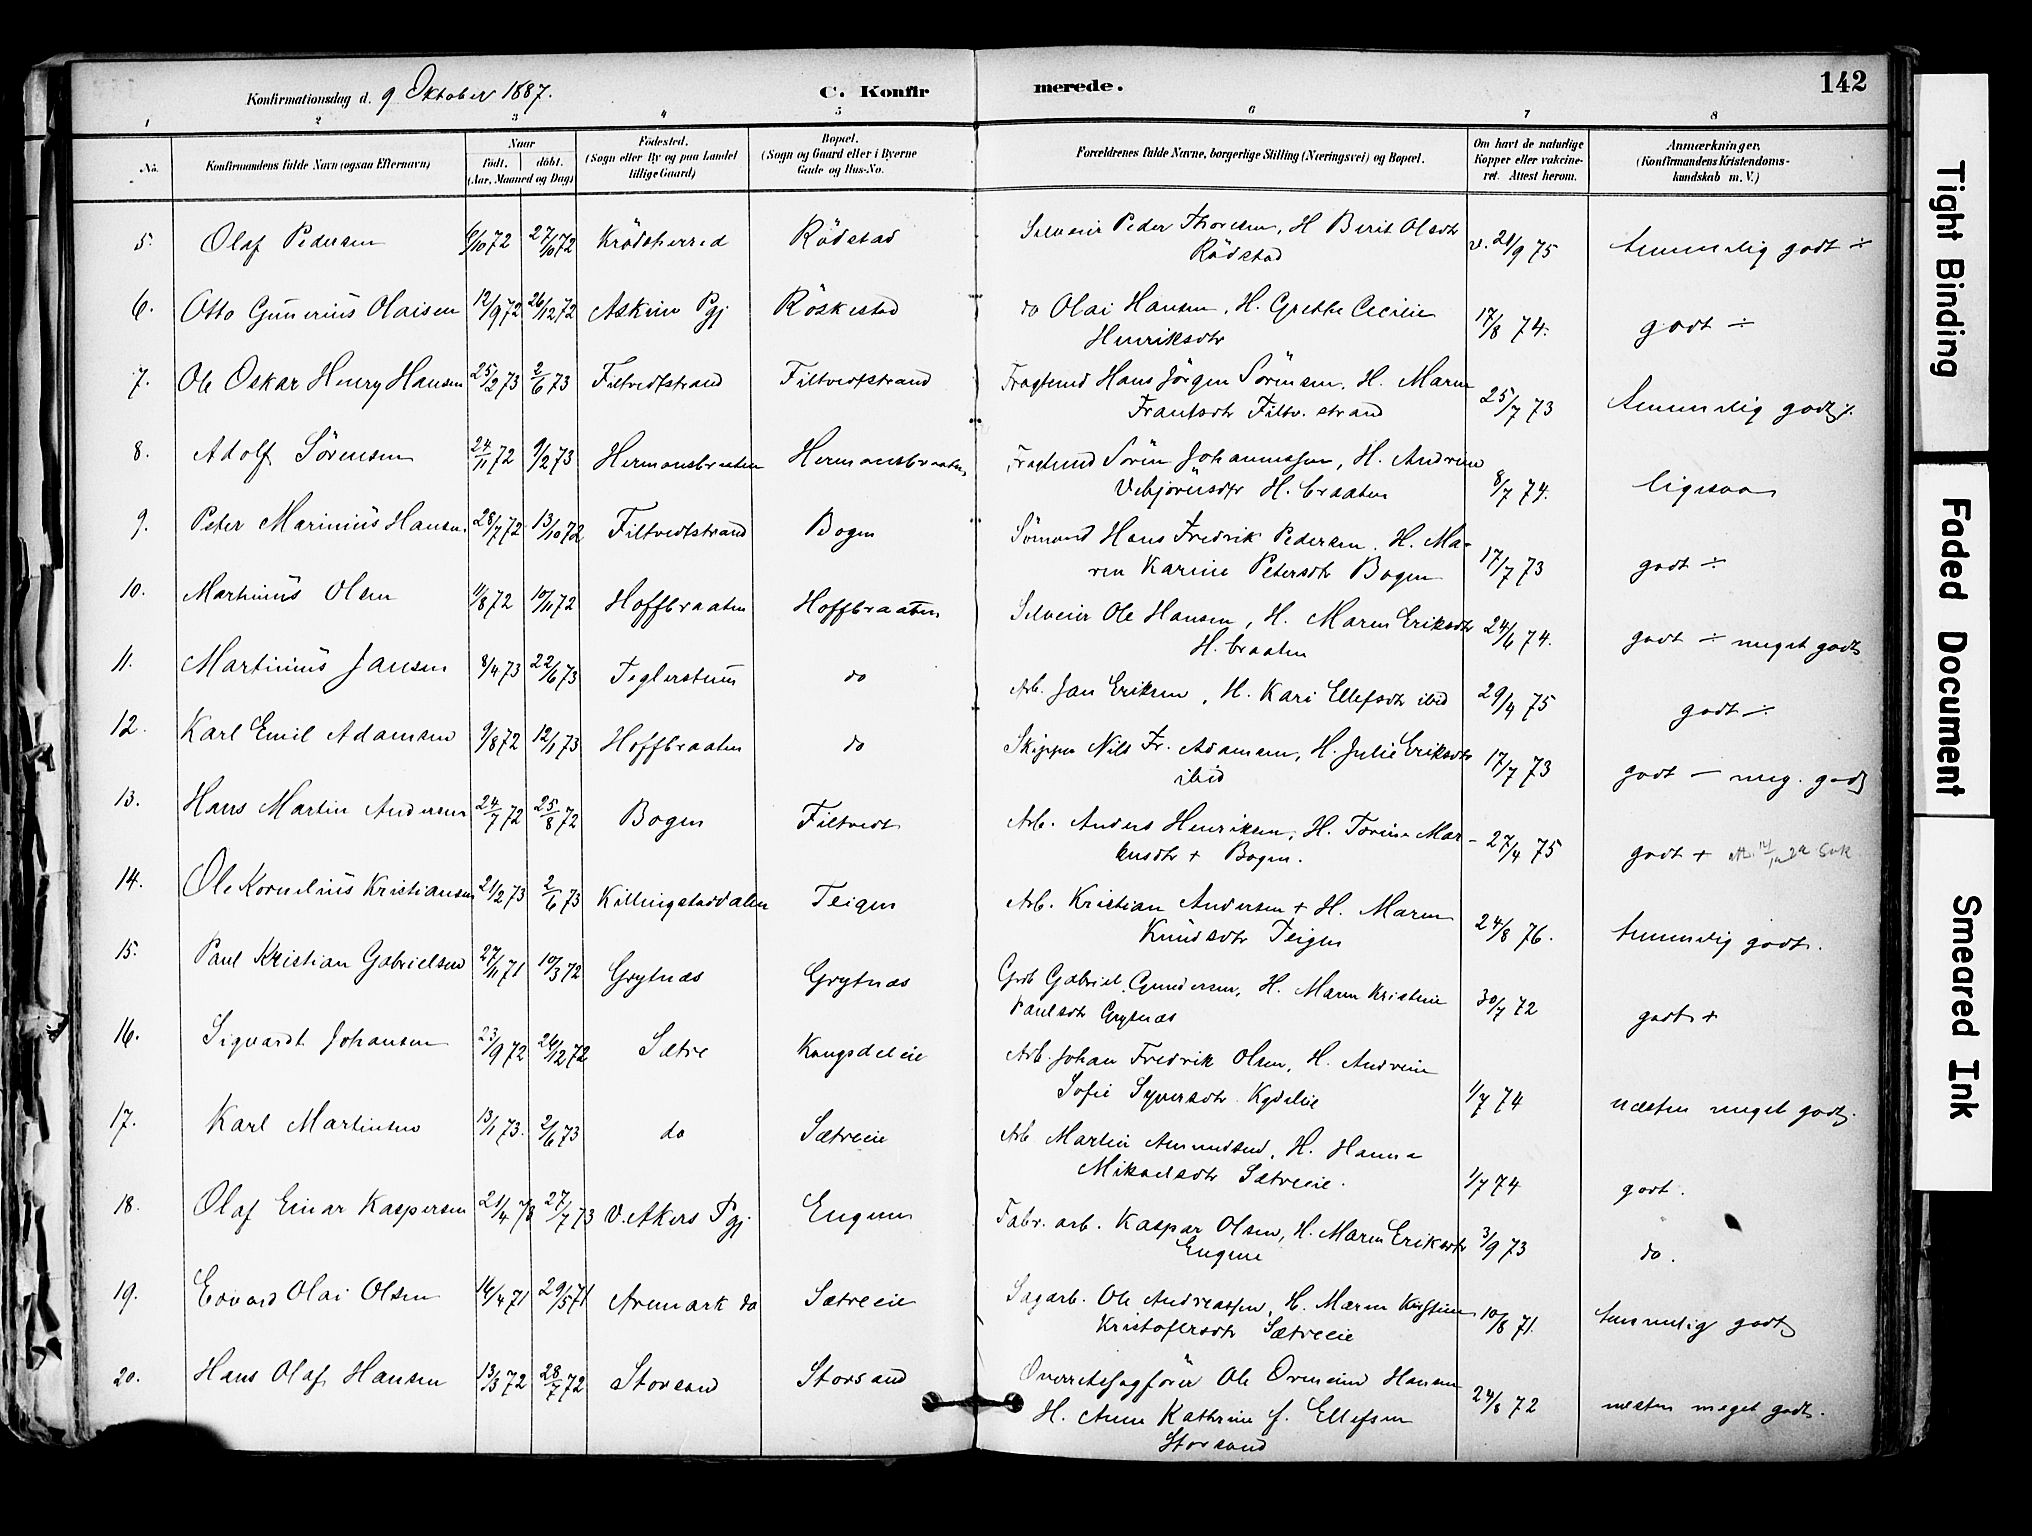 Konfirmationsdag d. 9 Oktober 1887. C. Konfirmerede. 142
1 2 3 4 5 6 7 8
No. Konfirmandens fulde Navn (ogsaa Efternavn) Naar født. døbt. (Aar, Maaned og Dag) Fødested. (Sogn eller By og paa Landet tillige Gaard) Bopæl. (Sogn og Gaard eller i Byerne Gade og Hus-No. Forældrenes fulde Navne, borgerlige Stilling (Næringsvei) og Bopæl. Om havt de naturlige Kopper eller vakcineret. Attest herom. Anmærkninger. (Konfirmandens Kristendomskundskab m. V.)
5. Olaf Pedersen 6/10 72 27/10 72 Krödsherred Rödstad Selveier Peder Thoresen, H Berit Olsdtr
Rödstad v. 21/9 75 temmelig godt ÷
6. Otto Gunerius Olaisen 12/9 72 26/12 72 Askim Pgj Röskestad do Olai Hansen, H. Grethe Cecilie
Henriksdtr 17/8 74. godt ÷
7. Ole Oskar Henry Hansen 25/2 73 2/6 73 Filtvedtstrand Filtvedtstrand Fragtemd Hans Jörgen Sörensen, H. Maren
Frantsdtr Filtv. strand 25/7 73 temmelig godt
8. Adolf Sörensen 24/11 72 9/2 73 Hermansbraaten Hermansbraaten Fragtemd Sören Johannessen, H. Andrine
Vebjörnsdtr H. braaten 8/7 74. ligesaa
9. Peter Marinius Hansen 28/7 72 13/10 72 Filtvedtstrand Bogen Sömand Hans Fredrik Pedersen, H. Ma-
ren Karine Petersdtr Bogen 17/7 73 godt ÷
10. Martinius Olsen 11/8 72 10/11 72 Hoffbraaten Hoffbraaten Selveier Ole Hansen, H. Maren Eriksdtr
H. braaten 24/6 74. godt ÷ meget godt
11. Martinius Jansen 8/4 73 22/6 73 Teglerstuen do Arb. Jan Eriksen, H. Kari Ellefsdtr ibid 29/4 75 godt ÷
12. Karl Emil Adamsen 9/8 72 12/1 73 Hoffbraaten do Skipper Nils Fr. Adamsen, H. Julie Eriksdtr
ibid 17/7 73 godt — meg. godt
13. Hans Martin Andersen 24/7 72 25/8 72 Bogen Filtvedt Arb. Anders Henriksen, H. Torine Mar-
kusdtr + Bogen. 27/4 75 godt +
14. Ole Kornelius Kristiansen 21/2 73 2/6 73 Killingstaddalen Teigen Arb. Kristian Andersen + H. Maren
Knudsdtr Teigen 24/8 76. temmelig godt.
15. Paul Kristian Gabrielsen 27/11 71 10/3 72 Grytnæs Grytnæs Grdb Gabriel Gundersen, H. Maren Kristine
Paulsdtr Grytnæs 30/7 72 godt +
16. Sigvardt Johansen 23/9 72 26/12 72 Sætre Kongsdeleie Arb. Johan Fredrik Olsen, H. Andrine
Sofie Syversdtr Kgdeleie 1/7 74 næsten meget godt.
17. Karl Martinsen 13/1 73. 2/6 73 do Sætreeie Arb Martin Amundsen, H. Hanna
Mikaelsdtr Sætreeie. 1/7 74 godt.
18. Olaf Einar Kaspersen 21/4 73 27/7 73 V. Akers Pgj Engene Fabr. arb. Kaspar Olsen, H. Maren Eriksdtr
Engene 3/9 73 do.
19. Edvard Olai Olsen 14/4 71 29/5 71 Aremark do Sætreeie Sagarb. Ole Andreassen, H. Maren Kirstine
Kristofersdtr Sætreeie 10/8 71. temmelig godt
20. Hans Olaf Hansen 13/3 72 28/7 72 Storsand Storsand Overretssagförer Ole Hansen
H. Anne Kathrine f. Ellefsen
Storsand 24/8 72 næsten meget godt.
Tight Binding
Faded Document
Smeared Ink